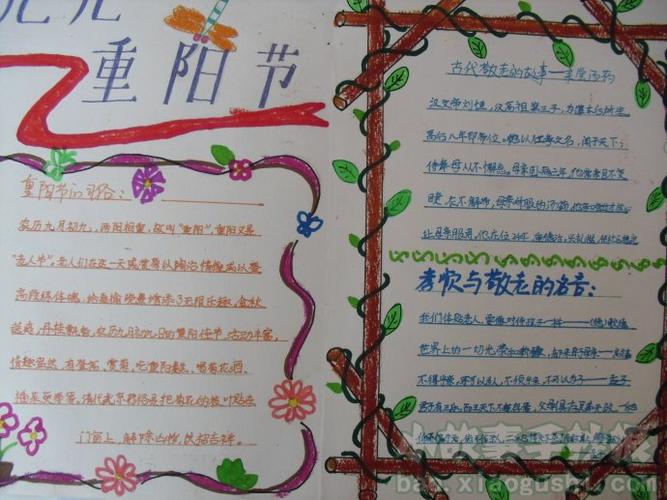 九九
重阳节
重阳节的习俗：
农历九月初九，两阳相重，故叫"重阳"，重阳又是
"老人节"。老人们在这一天或赏菊以陶冶情操或以登
高锻体魄，给桑榆晚景增添了无限乐趣。金秋
送爽，丹桂飘香，农历九月初九的重阳佳节，活动丰富，
情趣盎然，有登高，赏菊，吃重阳糕，喝菊花酒，
插茱萸等等，清代北京习俗是把菊花的枝叶贴在
门窗上，解除凶秽，以招吉祥。
古代敬老的故事——亲尝汤药
汉文帝刘恒，汉高祖第三子，为薄太后所生
高后八年即帝位。他以仁孝之名，闻于天下，
侍奉母人不懈怠。母亲卧病三年，他常常目不交
睫，衣不解带，母亲所服的汤药，他亲口尝过后才放心
让母亲服用。他在位24年，重德治，兴礼仪，
孝顺与敬老的名言：
我们体贴老人，要像对待孩子一样——(德)歌德
世界上的一切光荣和骄傲，都来自母亲——高尔基
不得乎亲，不可以为人，不顺乎亲，不可以为子——孟子
小故事手抄报
bao.xiaogushi.com